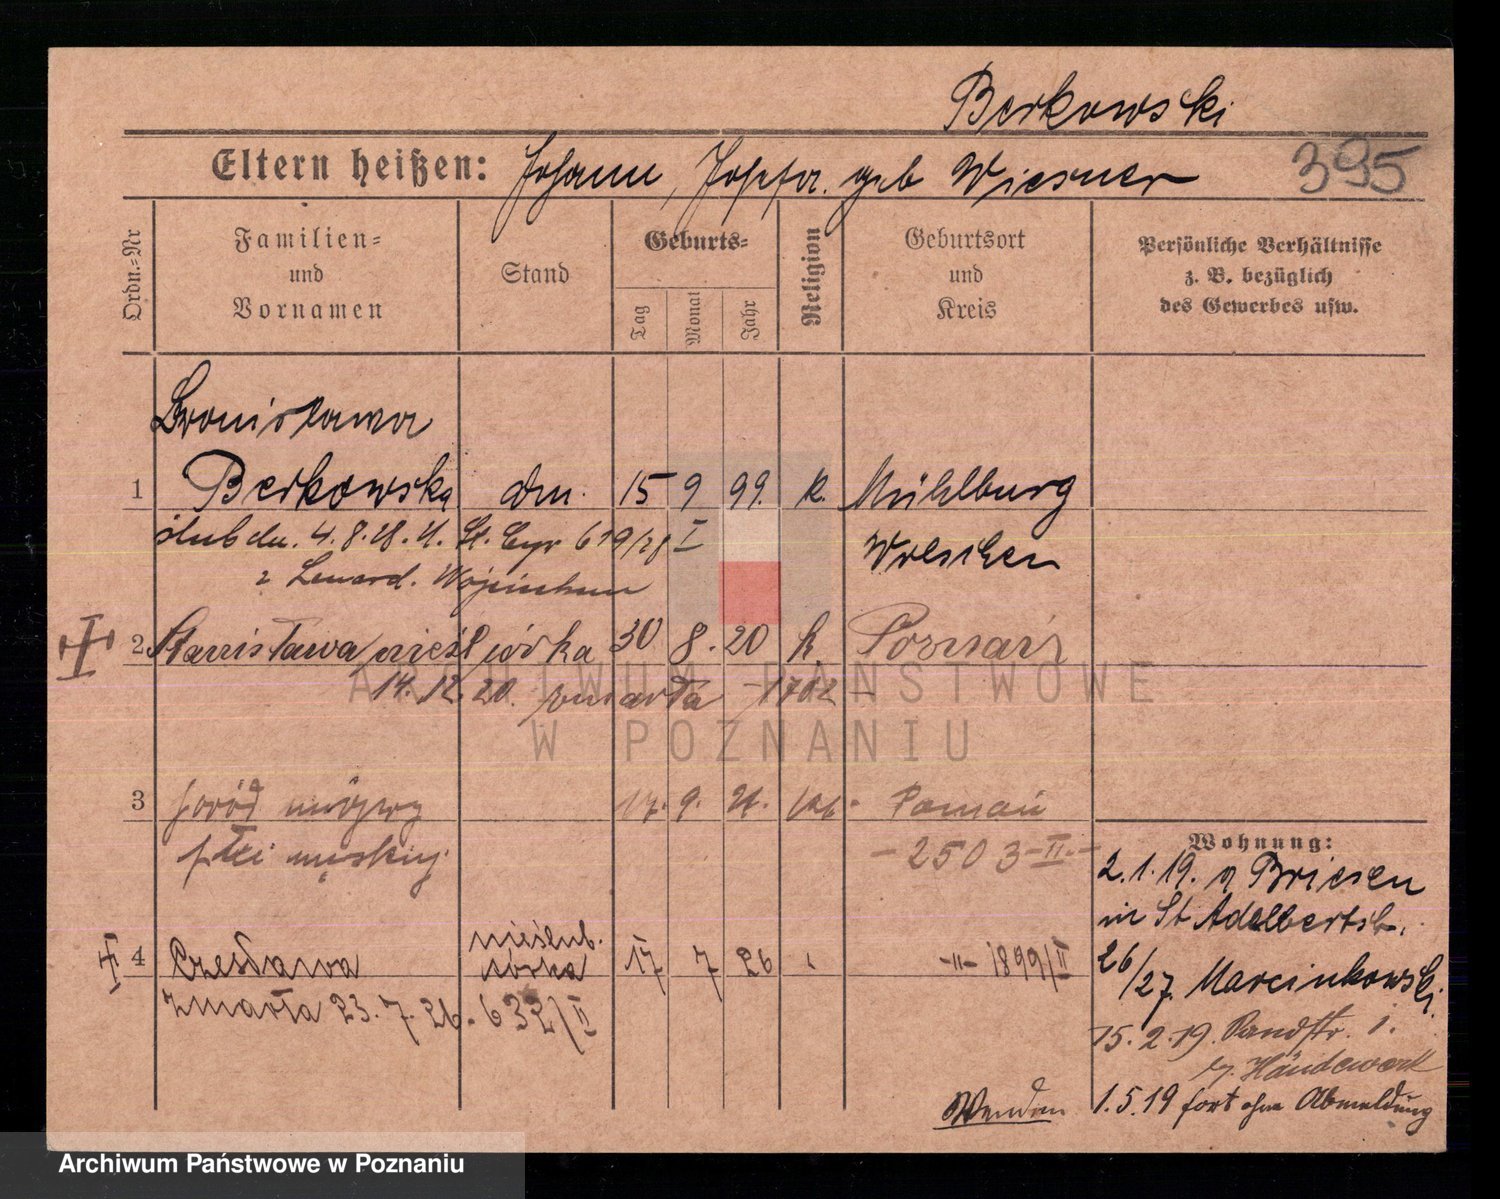 Berkowski
Eltern heißen: Johann, Josefa geb Wiesner 395
Ordn.=Nr
Familien=
und
Vornamen
Stand
Geburts=
Tag
Monat
Jahr
Religion
Geburtsort
und
Kreis
Persönliche Verhältnisse
z. B. bezüglich
des Gewerbes usw.
Bronisława
1 Berkowska dm. 15 9 99. k. Mühlburg
ślub dn. 4. 8. 28. St. Cyw 619/28 I Wreschen
z Leonard.
2 Stanisława nieśl córka 30 8. 20 k. Poznań
14. 12. 20. zmarła -1702-
3 poród 17. 9. 21. kat. Poznań
płci męskiej -2503-II.-
4 Czesława nieślub. córka 17 7 26 -"- 1899/II
zmarła 23. 7. 26. 632/II
Wohnung:
2. 1. 19. a Briesen
in St Adalbertstr.
26/27. Marcinkowski
15. 2. 19. Sandstr. 1.
b/. Händewerk
1. 5. 19 fort ohne Abmeldung
Wenden
ARCHIWUM PAŃSTWOWE
W POZNANIU
Archiwum Państwowe w Poznaniu